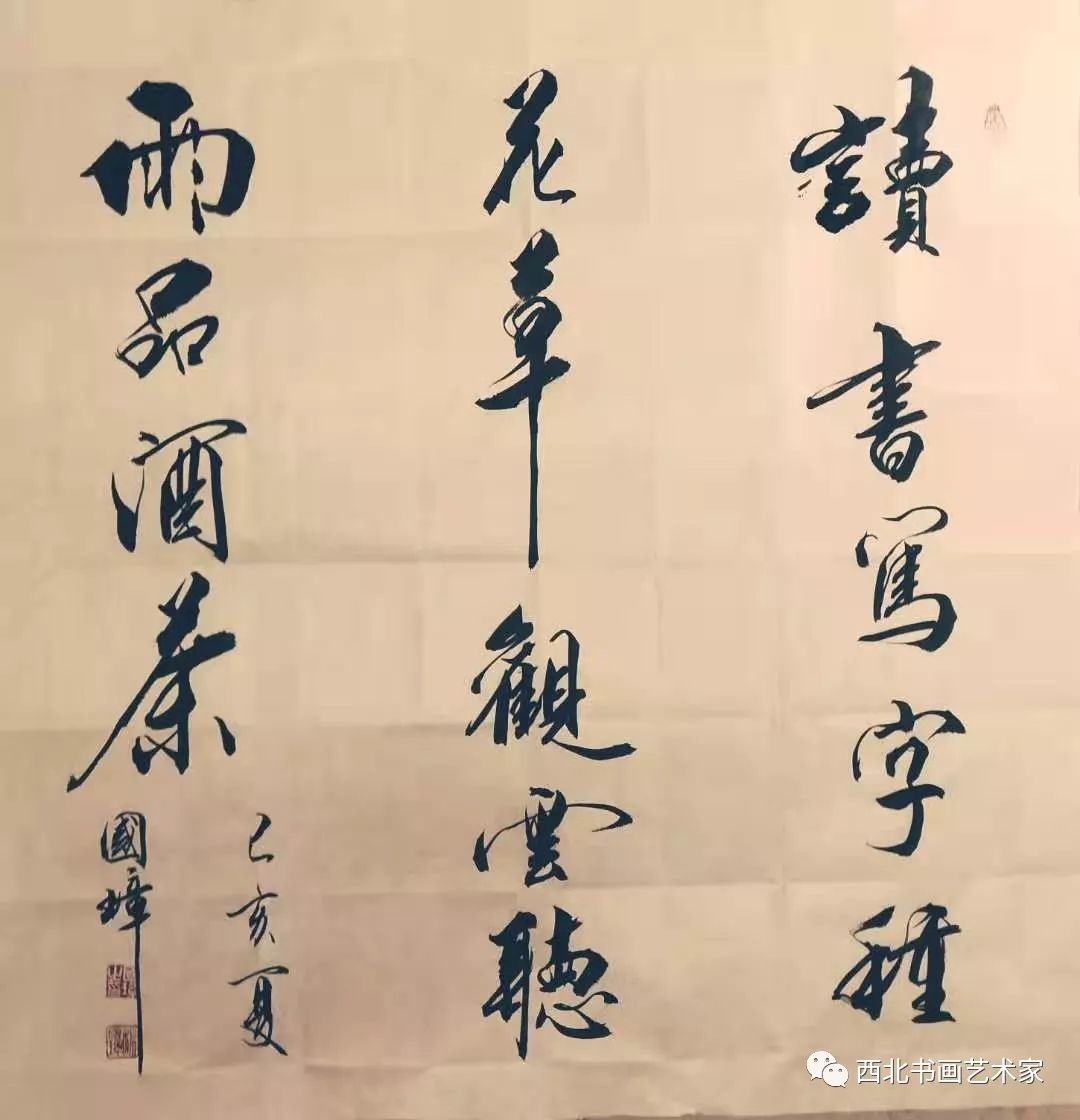 讀書寫字種
花草觀雲聽
雨品酒茶
己亥夏
國璋
西北书画艺术家